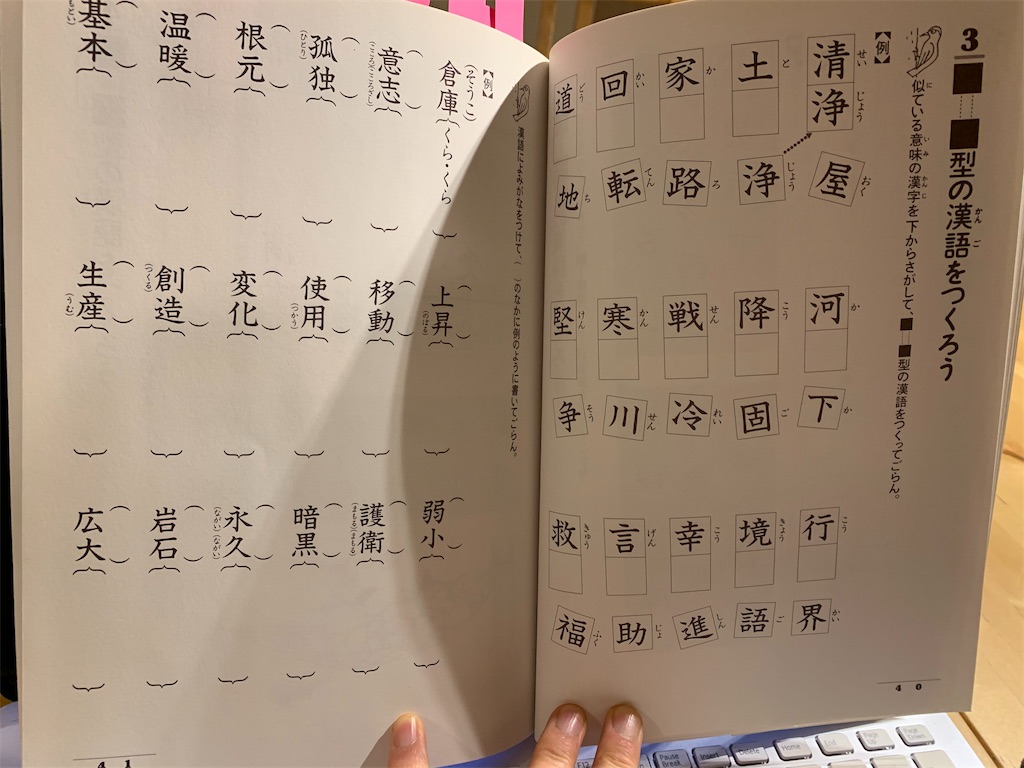 3
■┈■型の漢語をつくろう
かんご
似ている意味の漢字を下からさがして、■┈■型の漢語をつくってごらん。
に いみ かんじ
【例】
清 せい
浄 じょう
土 と
家 か
回 かい
道 どう
屋 おく
浄 じょう
路 ろ
転 てん
地 ち
河 か
降 こう
戦 せん
寒 かん
堅 けん
下 か
固 ご
冷 れい
川 せん
争 そう
行 こう
境 きょう
幸 こう
言 げん
救 きゅう
界 かい
語 ご
進 しん
助 じょ
福 ふく
40
漢語によみがなをつけて、( )のなかに例のように書いてごらん。
【例】
(そうこ)
倉庫(くら・くら)
意志
(こころ)(こころざし)
孤独
(ひとり)
根元
温暖
基本
上昇
(のぼる)
移動
使用
(つかう)
変化
創造
(つくる)
生産
(うむ)
弱小
護衛
(まもる)(まもる)
暗黒
永久
(ながい)(ながい)
岩石
広大
41